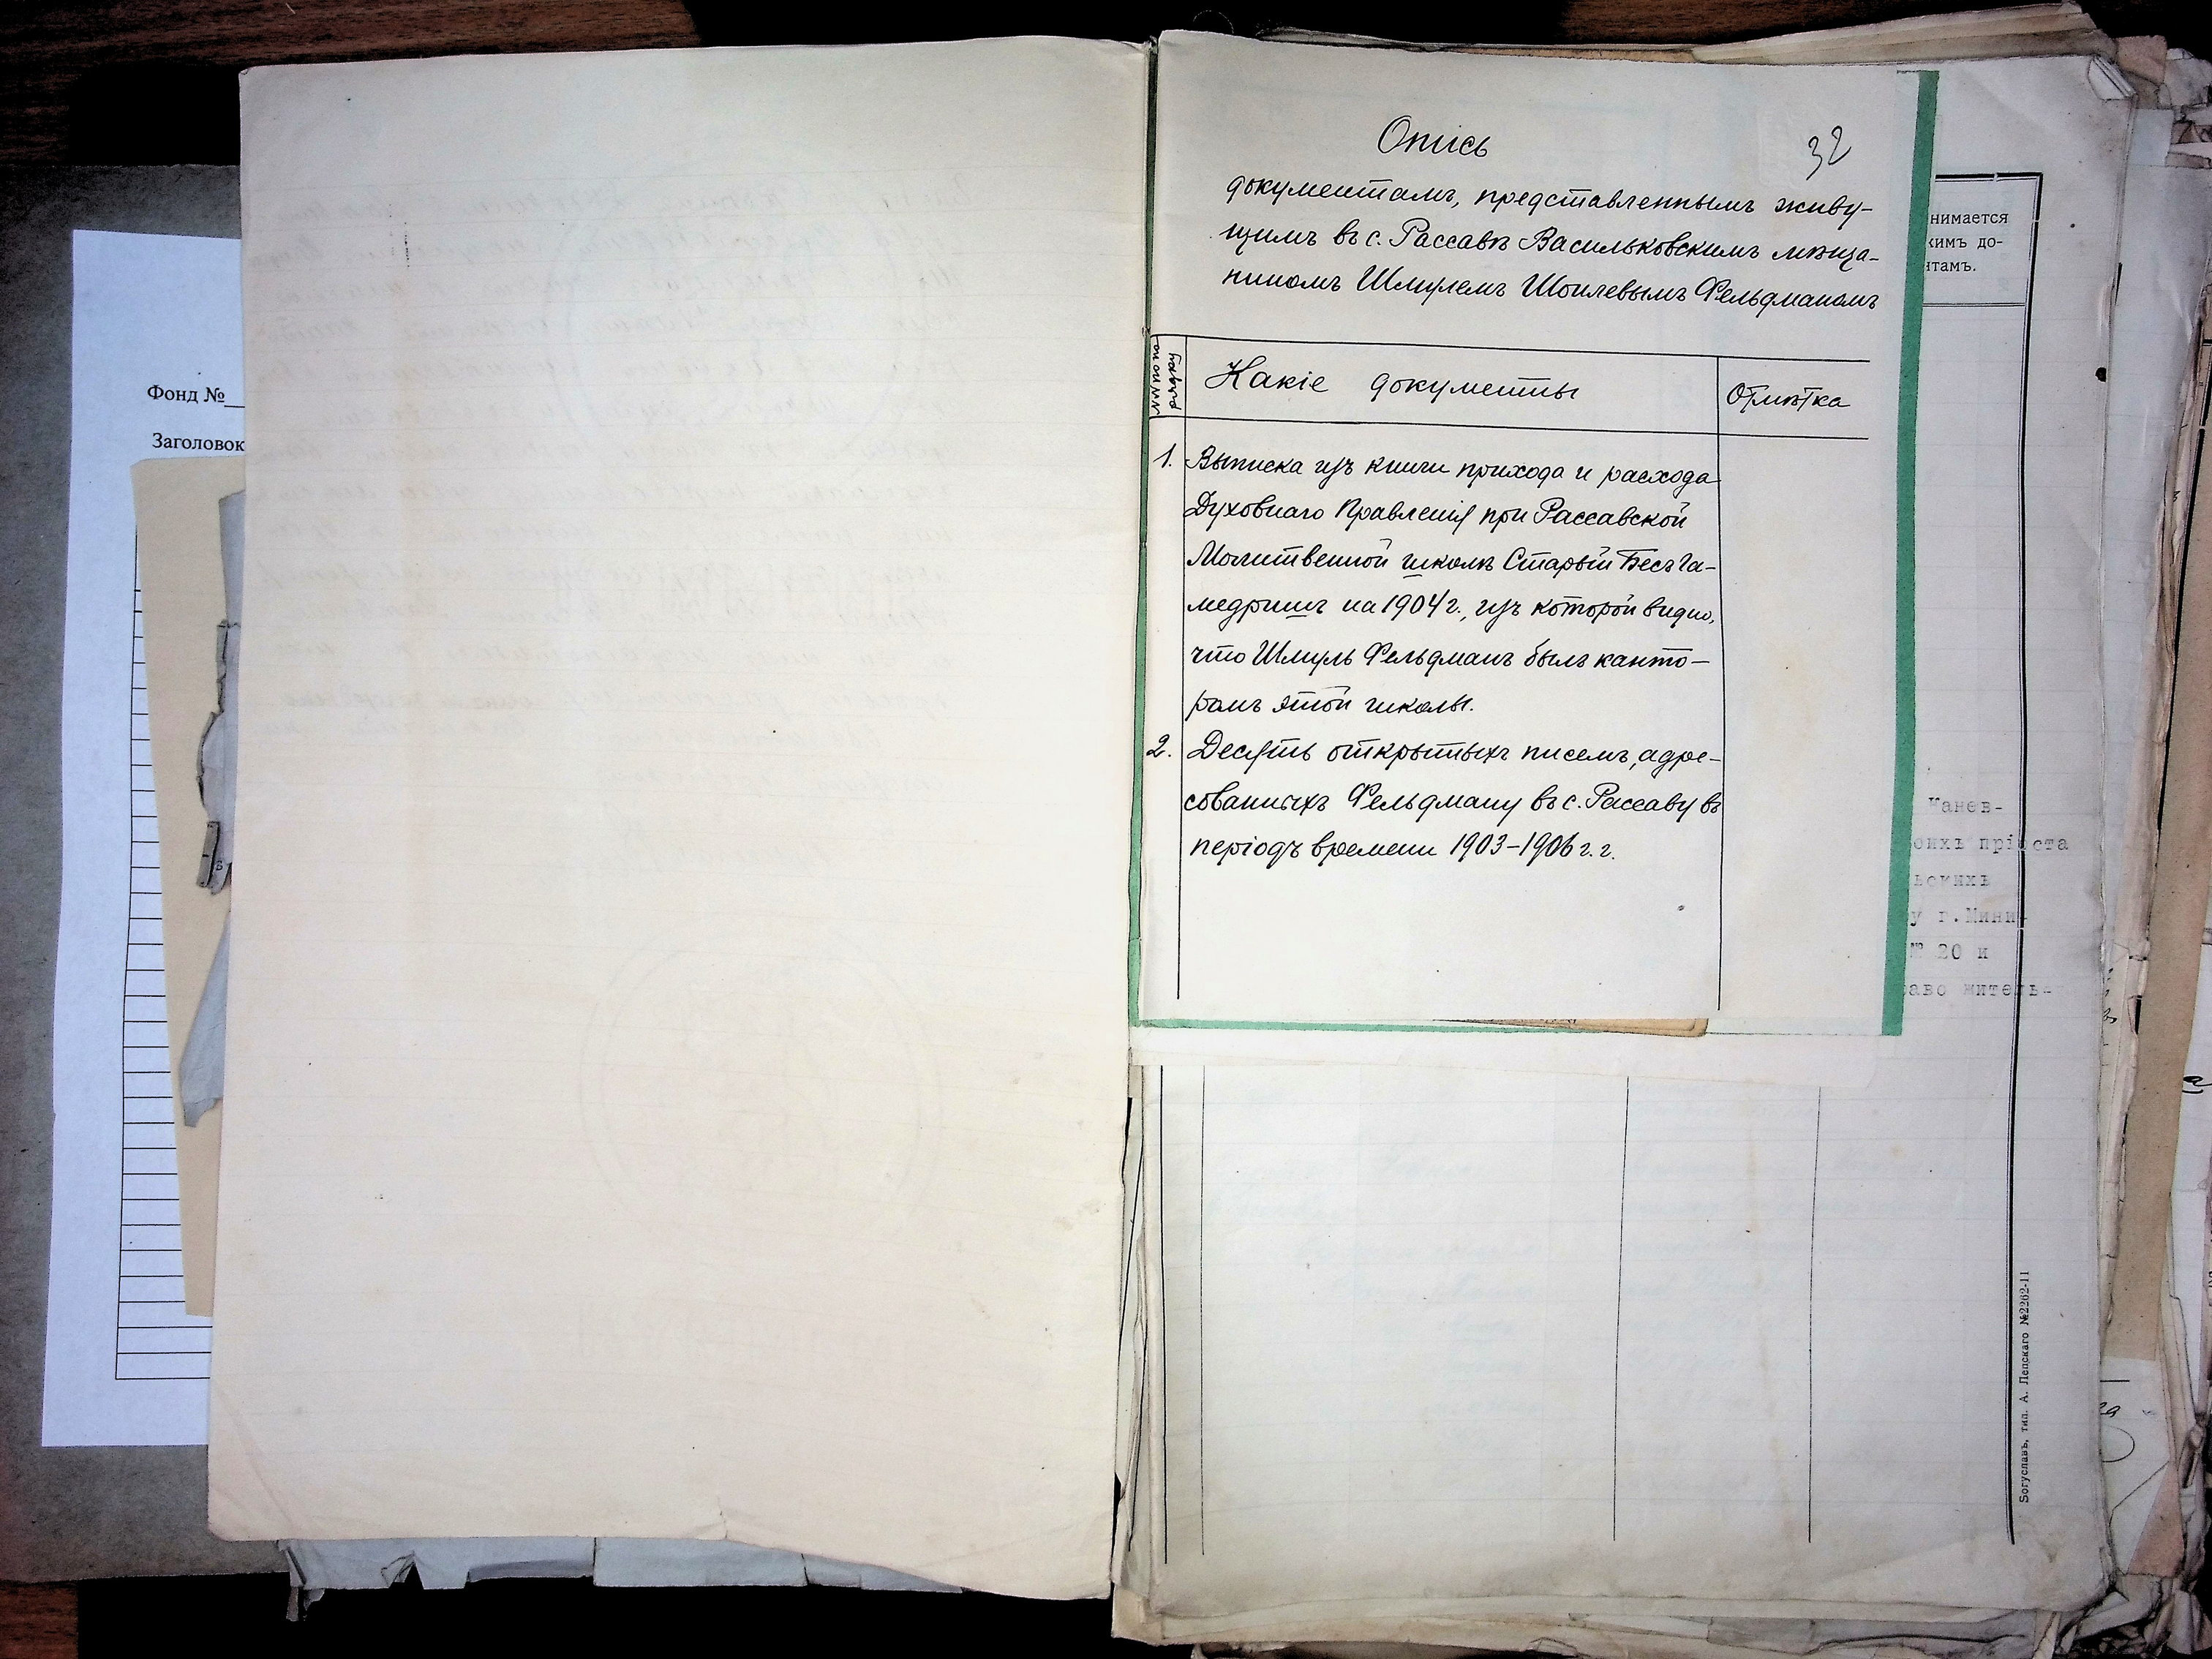 Фонд №
Заголовок
Опись
32
документамъ, представленнымъ живу-
щимъ въ с. Рассавѣ Васильковскимъ мѣща-
ниномъ Шмулемъ Шоилевымъ Фельдманомъ
№№ по по
рядку
Какіе документы
Отмѣтка
1. Выписка изъ книги прихода и расхода
Духовнаго Правленія при Рассавской
Молитвенной школѣ Старый Бесъ Га-
медришъ на 1904 г., изъ которой видно,
что Шмуль Фельдманъ былъ канто-
ромъ этой школы.
2. Десять открытыхъ писемъ, адре-
сованныхъ Фельдману въ с. Рассаву въ
періодъ времени 1903-1906 г. г.
нимается
кимъ до-
нтамъ.
Канев-
оихъ пріста
ьскихъ
у г. Мини-
№ 20 и
аво житель-
Богуславъ, тип. А. Лепскаго №2262-11